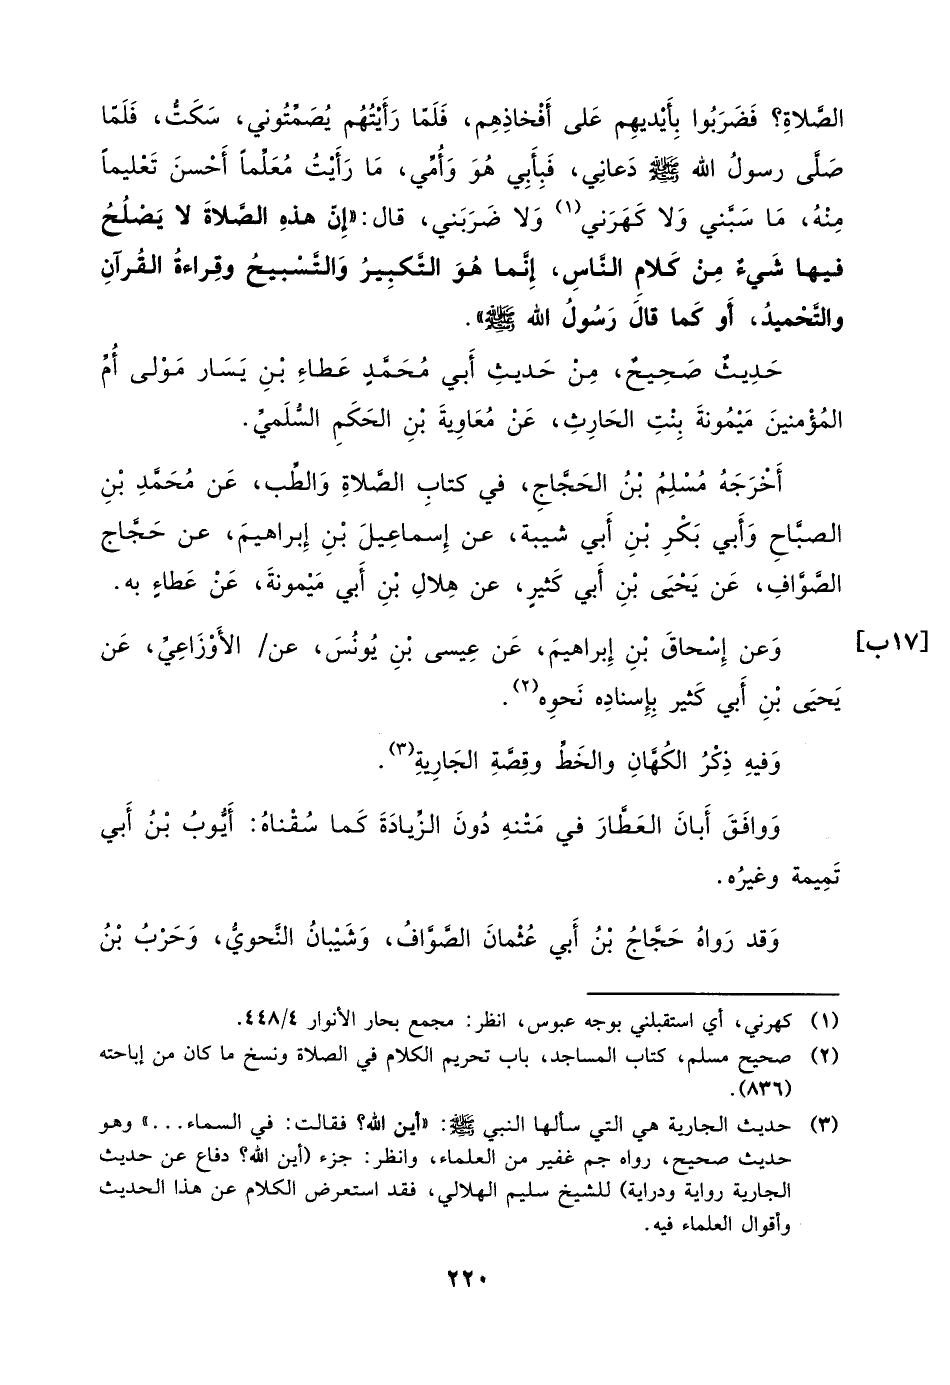 الصَّلاةِ؟ فَضَرَبُوا بِأَيْديهِم عَلى أَفْخاذِهِم، فَلَمّا رَأَيْتُهُم يُصَمِّتُوني، سَكَتُّ، فَلَمّا
صَلَّى رسولُ الله ﷺ دَعاني، فَبِأَبِي هُوَ وَأُمِّي، مَا رَأَيْتُ مُعَلِّماً أَحْسنَ تَعْليماً
مِنْهُ، مَا سَبَّني وَلا كَهَرَني(١) وَلا ضَرَبَني، قال: «إنّ هذهِ الصَّلاةَ لا يَصْلُحُ
فيها شَيءٌ مِنْ كَلامِ النَّاسِ، إنَّما هُوَ التَّكبيرُ وَالتَّسْبيحُ وقِراءةُ القُرآنِ
والتَّحْميدُ، أَو كَما قالَ رَسُولُ الله ﷺ».
حَدِيثٌ صَحِيحٌ، مِنْ حَديثِ أَبي مُحَمَّدٍ عَطاءِ بْنِ يَسَار مَوْلى أُمِّ
المُؤْمنينَ مَيْمُونةَ بِنْتِ الحَارثِ، عَنْ مُعَاويةَ بْنِ الحَكَمِ السُّلَميِّ.
أَخْرَجَهُ مُسْلِمُ بْنُ الحَجَّاجِ، في كتابِ الصَّلاةِ وَالطِّب، عَن مُحَمَّدِ بْنِ
الصبَّاحِ وَأَبي بَكْرِ بْنِ أَبي شيبة، عن إسماعِيلَ بْنِ إبراهيمَ، عن حَجَّاج
الصَّوَّافِ، عَن يَحْيَى بْنِ أَبي كَثيرٍ، عن هِلالِ بْنِ أَبي مَيْمونةَ، عَنْ عَطاءٍ به.
[١٧ب] وَعن إسْحاقَ بْنِ إبراهيمَ، عَن عِيسى بْنِ يُونُسَ، عن/ الأَوْزَاعِيِّ، عَن
يَحيَى بْنِ أَبي كَثير بِإسنادِه نَحوِه(٢).
وَفيهِ ذِكْرُ الكُهَّانِ والخَطِّ وقِصَّةِ الجَارِيةِ(٣).
وَوافَقَ أَبانَ العَطَّارَ في مَتْنهِ دُونَ الزِّيادَةَ كَما سُقْناهُ: أَيُّوبُ بْنُ أَبي
تَمِيمة وغيرُه.
وَقد رَواهُ حَجَّاجُ بْنُ أَبي عُثْمانَ الصَّوَّافُ، وَشَيْبانُ النَّحويُّ، وَحَرْبُ بْنُ
(١) كهرني، أي استقبلني بوجه عبوس، انظر: مجمع بحار الأنوار ٤٤٨/٤.
(٢) صحيح مسلم، كتاب المساجد، باب تحريم الكلام في الصلاة ونسخ ما كان من إباحته
(٨٣٦).
(٣) حديث الجارية هي التي سألها النبي ﷺ: «أين الله؟ فقالت: في السماء...» وهو
حديث صحيح، رواه جم غفير من العلماء، وانظر: جزء (أين الله؟ دفاع عن حديث
الجارية رواية ودراية) للشيخ سليم الهلالي، فقد استعرض الكلام عن هذا الحديث
وأقوال العلماء فيه.
٢٢٠